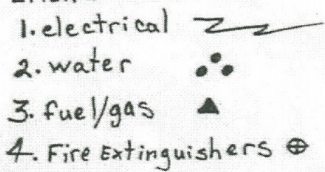 1. electrical
2. water
3. fuel/gas
4. Fire Extinguishers